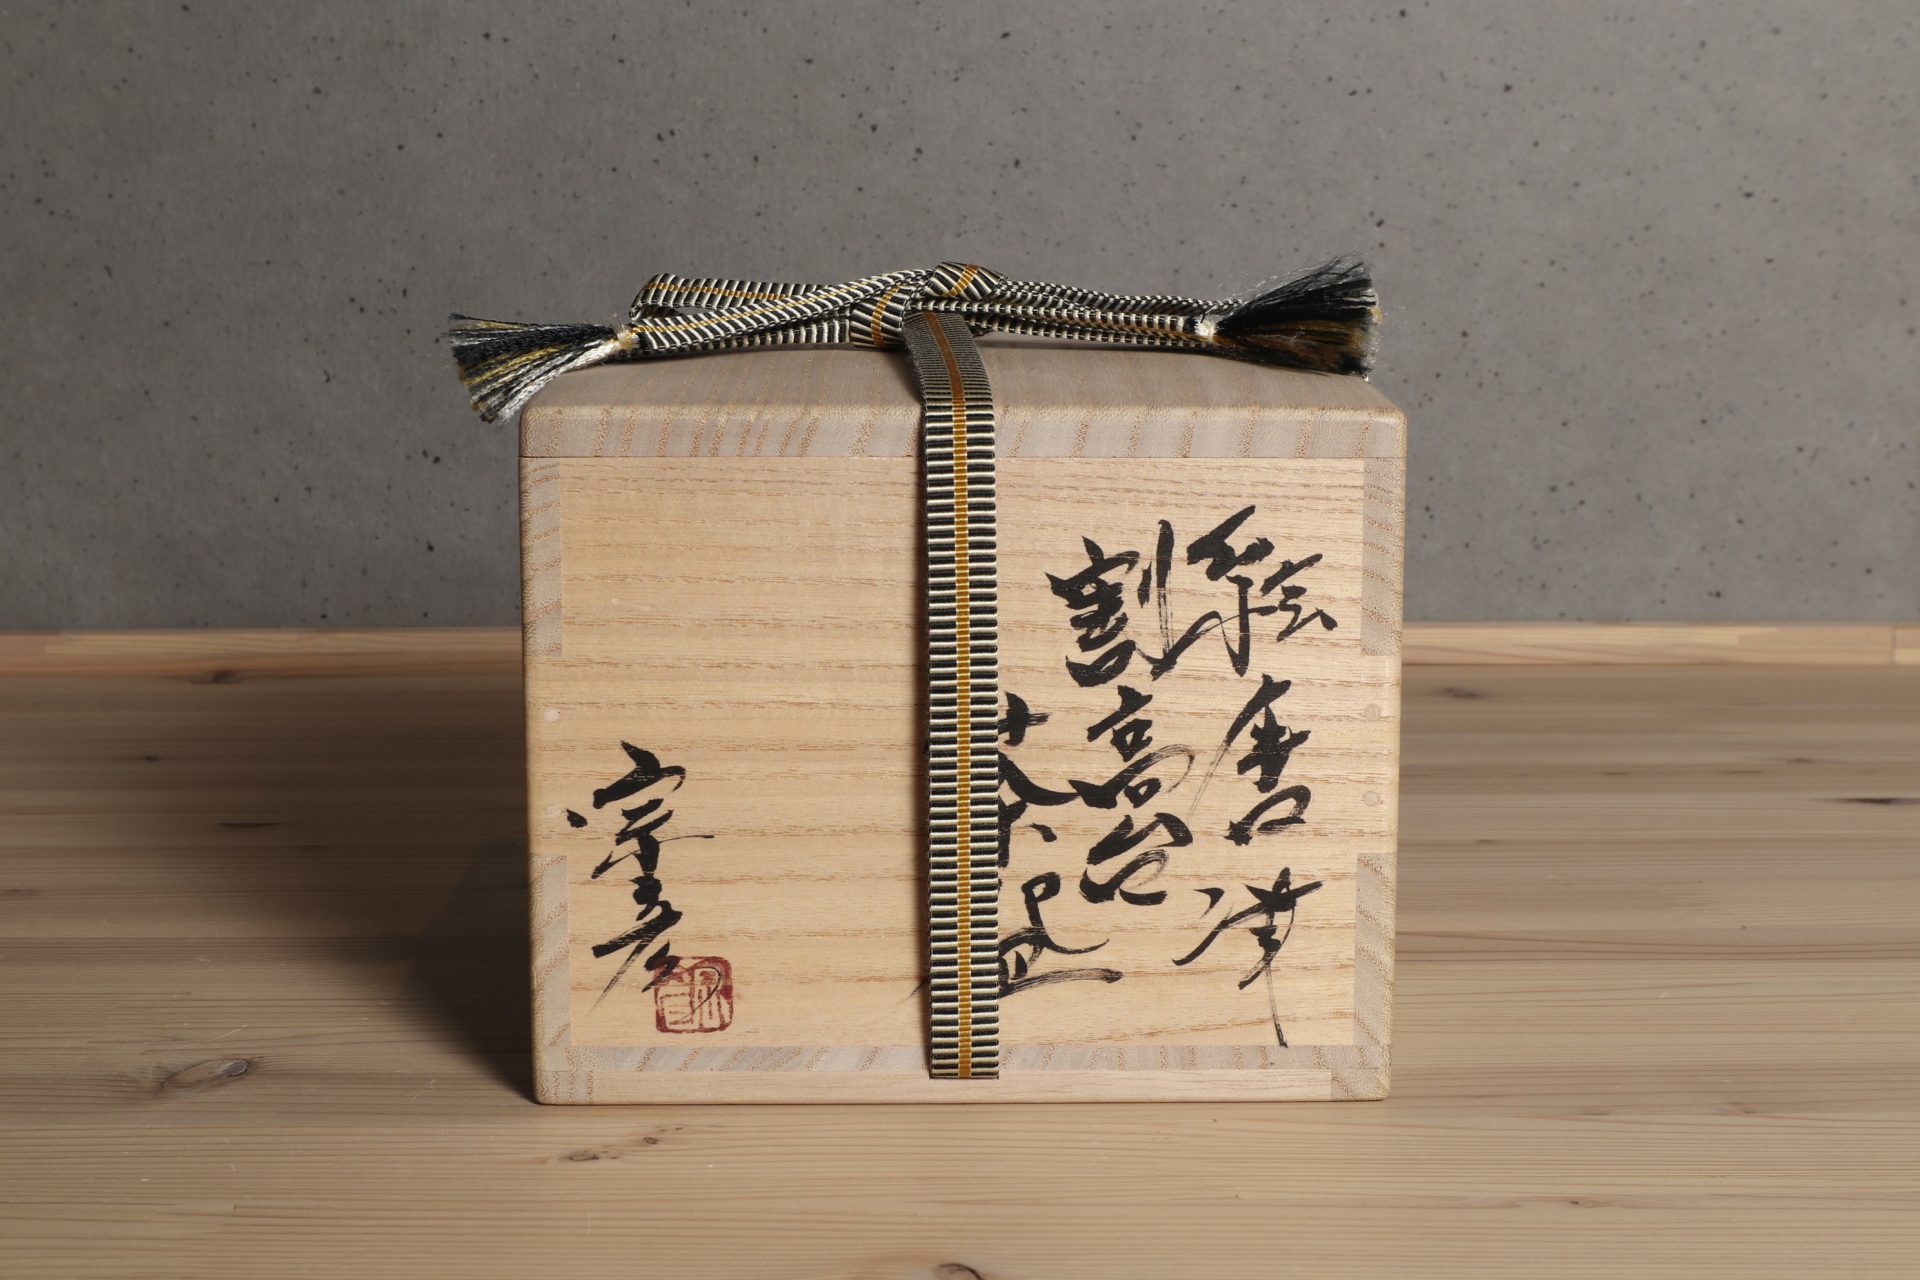 絵唐津
割高台
茶盌
宗彦